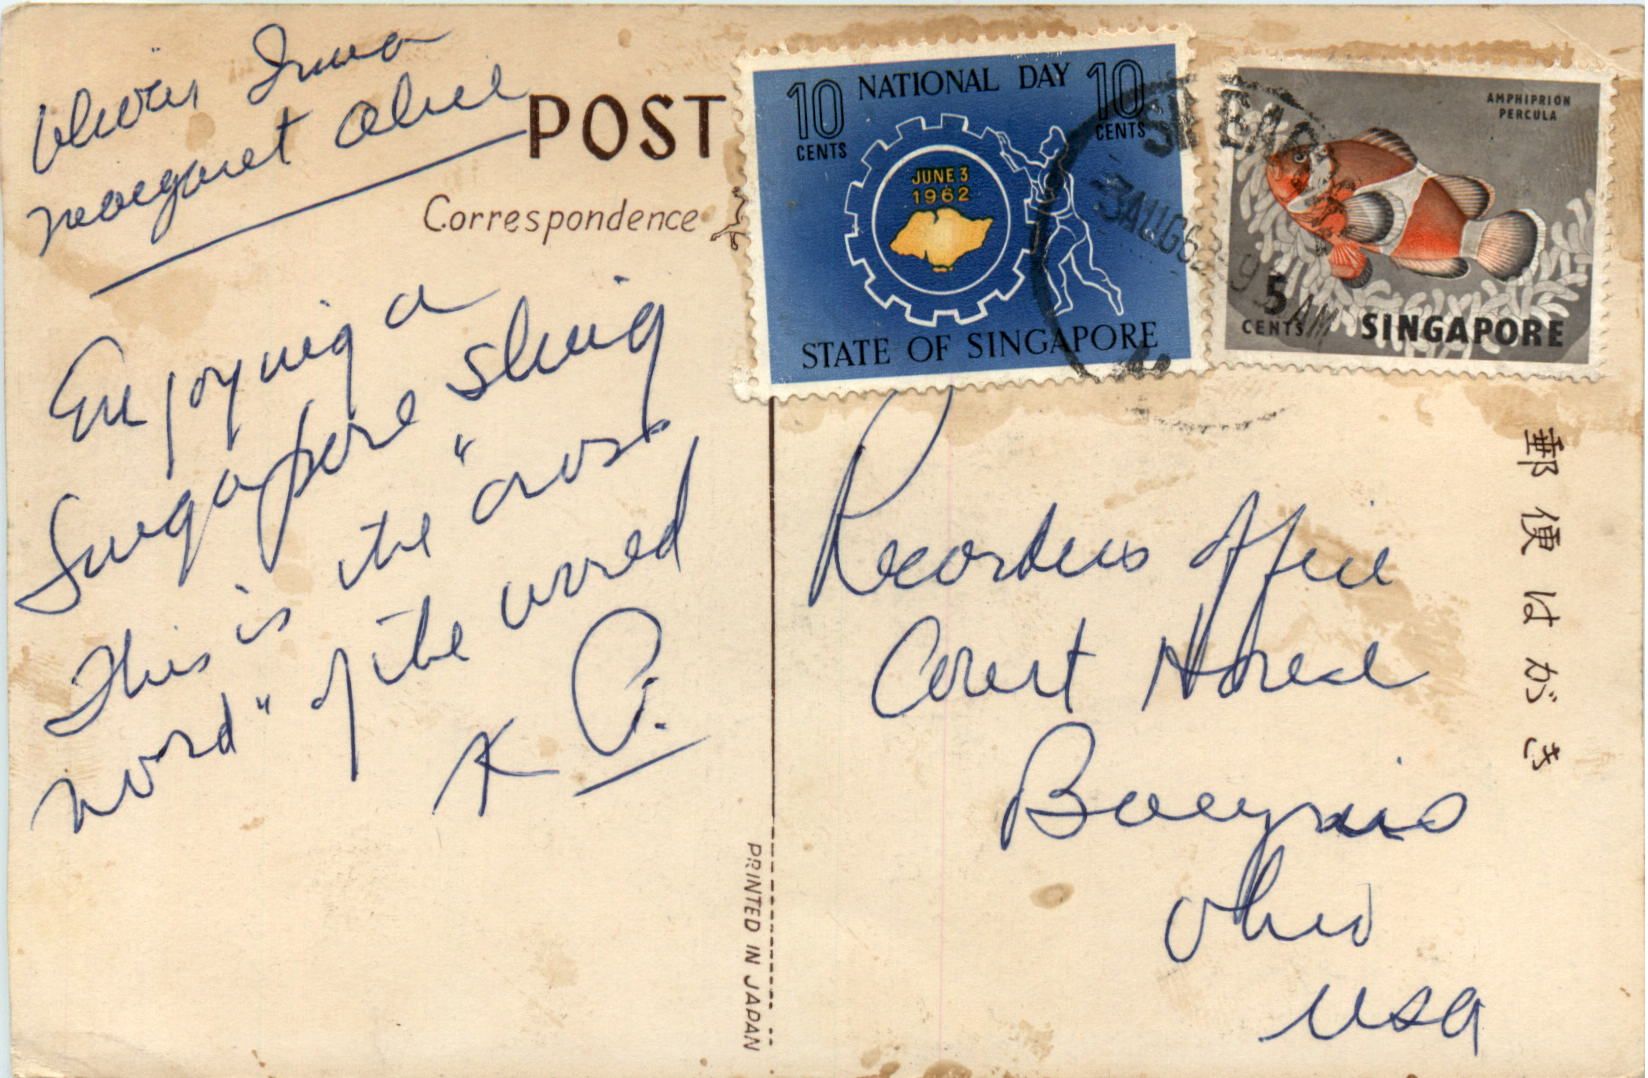 Irma
Margaret Alice
POST
Correspondence
Enjoying a
Singapore sling
This is the "cross
word" of the world
K P.
10 NATIONAL DAY 10
CENTS CENTS
JUNE 3
1962
STATE OF SINGAPORE
AMPHIPRION
PERCULA
5
CENTS SINGAPORE
3 AUG 62
AM
Recorders Office
Court House
Bucyrus
Ohio
USA
郵便はがき
PRINTED IN JAPAN